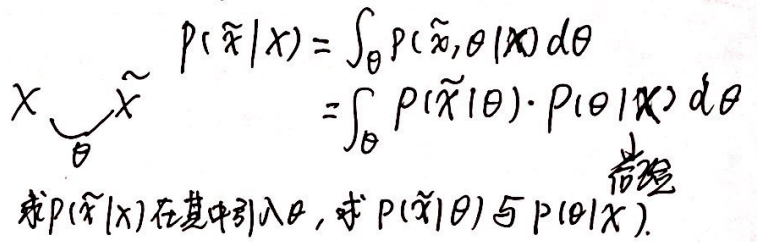 p(x̃|X) = ∫_θ p(x̃,θ|X) dθ
X x̃
θ
= ∫_θ p(x̃|θ)·p(θ|X) dθ
后验
求p(x̃|X)在其中引入θ,求 p(x̃|θ)与p(θ|X).